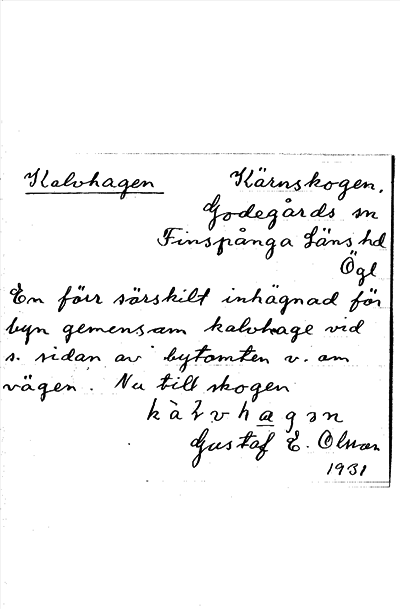 Kalvhagen Kärnskogen.
Godegårds sn
Finspånga läns hd
Ögl
En förr särskilt inhägnad för
byn gemensam kalvhage vid
s. sidan av bytomten v. om
vägen. Nu till skogen
Gustaf E. Olman
1931